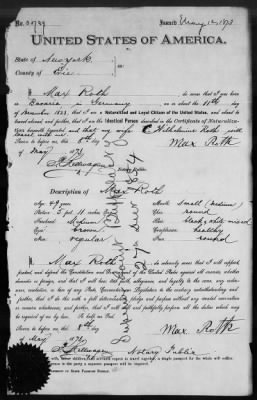 Issued May 12 1873
UNITED STATES OF AMERICA.
State of New York
County of Erie
I Max Roth do swear that I was born
at Bavaria in Germany on or about the 11th day
of 1823, that I am a Naturalized and Loyal Citizen of the United States, and about to
travel abroad; and further, that I am the Identical Person described in the Certificate of Naturalization
and that my wife Wilhelmine Roth will
travel with me.
Max Roth
Sworn to before me, this 8th day
of May 1873
Notary Public
Description of Max Roth
Age: 49 years
Mouth: small (medium)
Stature: 5 feet 11 inches
Chin: round
Forehead: Medium
Hair: black & white mixed
Eyes: brown
Complexion: healthy
Nose: regular
Face: round
I Max Roth do solemnly swear that I will support,
protect and defend the Constitution and Government of the United States against all enemies, whether
domestic or foreign, and that I will bear true faith, allegiance and loyalty to the same, any ordinance,
resolution, or law of any State Convention or Legislature to the contrary notwithstanding, and
further, that I do this with a full determination, pledge and purpose without any mental reservation
or evasion whatsoever; and further, that I will well and faithfully perform all the duties which may
be required of me by law. So help me God.
Max Roth
Sworn to before me, this 8th day
of May 1873
Notary Public